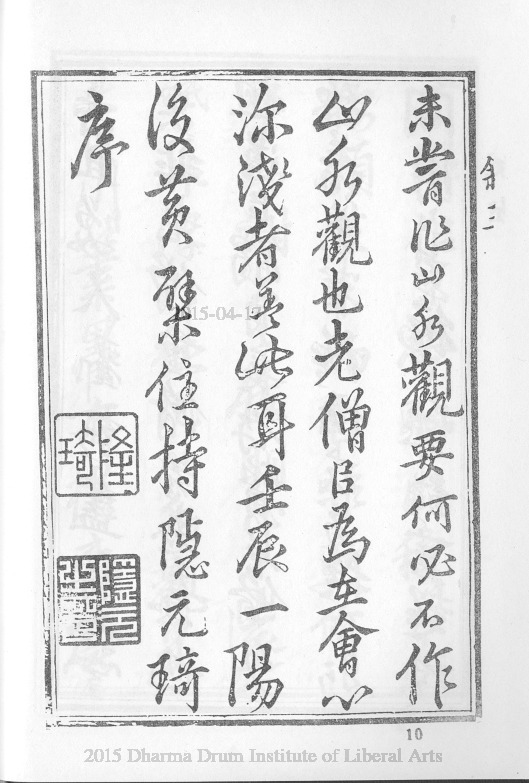 未嘗作山水觀要何必不作
山水觀也老僧以為在會心
深淺者差此耳壬辰一陽
後黃檗住持隱元琦
序
隆琦
隱元之印
10
2015-04-17
2015 Dharma Drum Institute of Liberal Arts